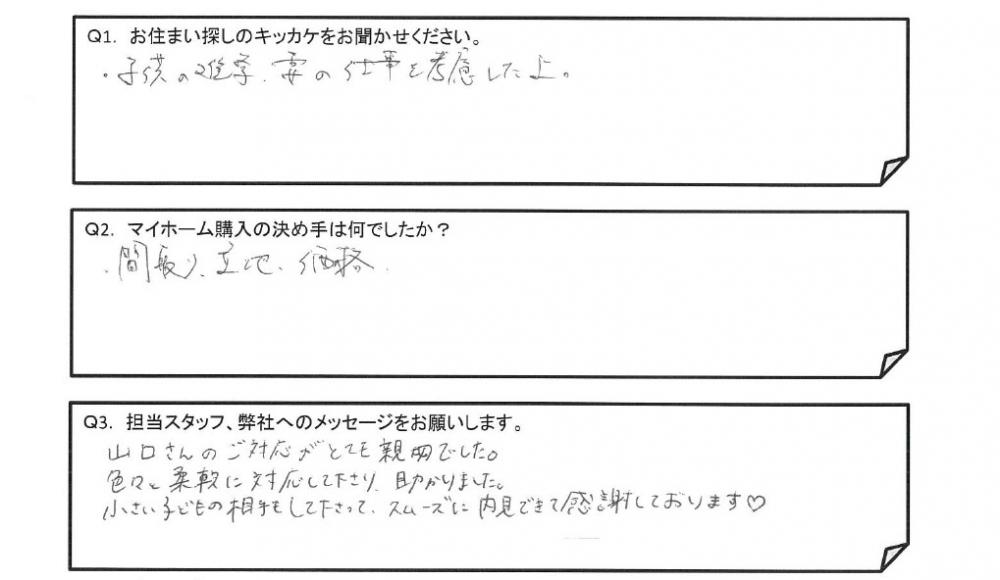 Q1. お住まい探しのキッカケをお聞かせください。
・子供の進学、妻の仕事を考慮した上。
Q2. マイホーム購入の決め手は何でしたか？
・間取り、立地、価格
Q3. 担当スタッフ、弊社へのメッセージをお願いします。
山口さんのご対応がとても親切でした。
色々と柔軟に対応して下さり、助かりました。
小さい子どもの相手もして下さって、スムーズに内見できて感謝しております♡